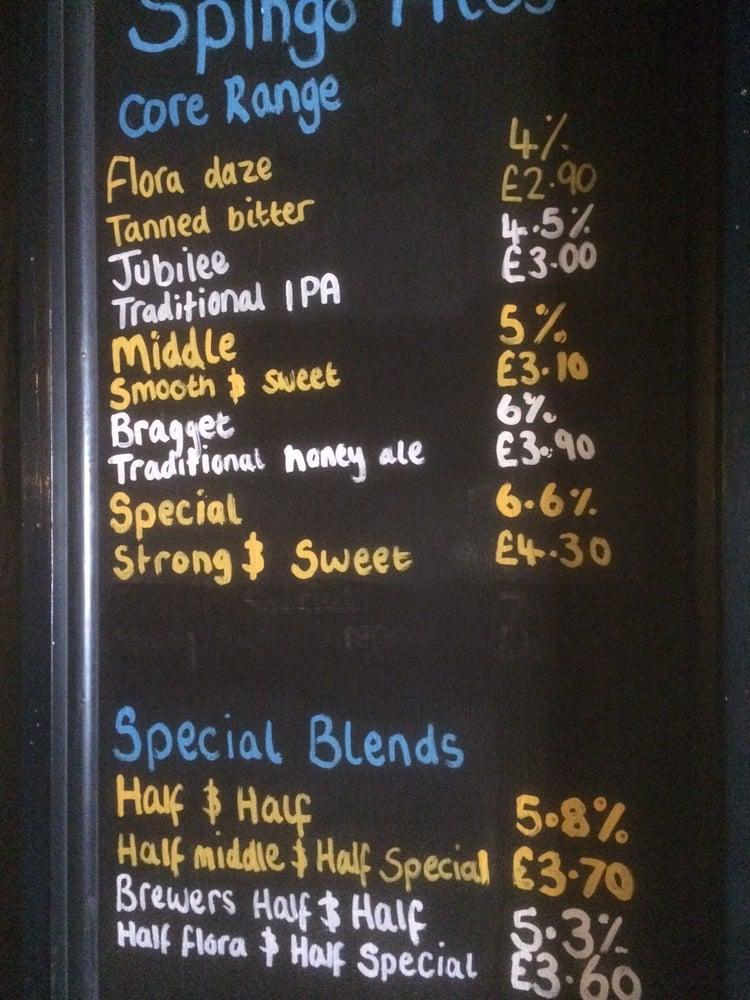 Spingo Ales
Core Range
Flora daze 4%
Tanned bitter £2.90
Jubilee 4.5%
Traditional IPA £3.00
Middle 5%
Smooth $ Sweet £3.10
Bragget 6%
Traditional honey ale £3.90
Special 6.6%
Strong $ Sweet £4.30
Special Blends
Half $ Half 5.8%
Half middle $ Half Special £3.70
Brewers Half $ Half 5.3%
Half flora $ Half Special £3.60